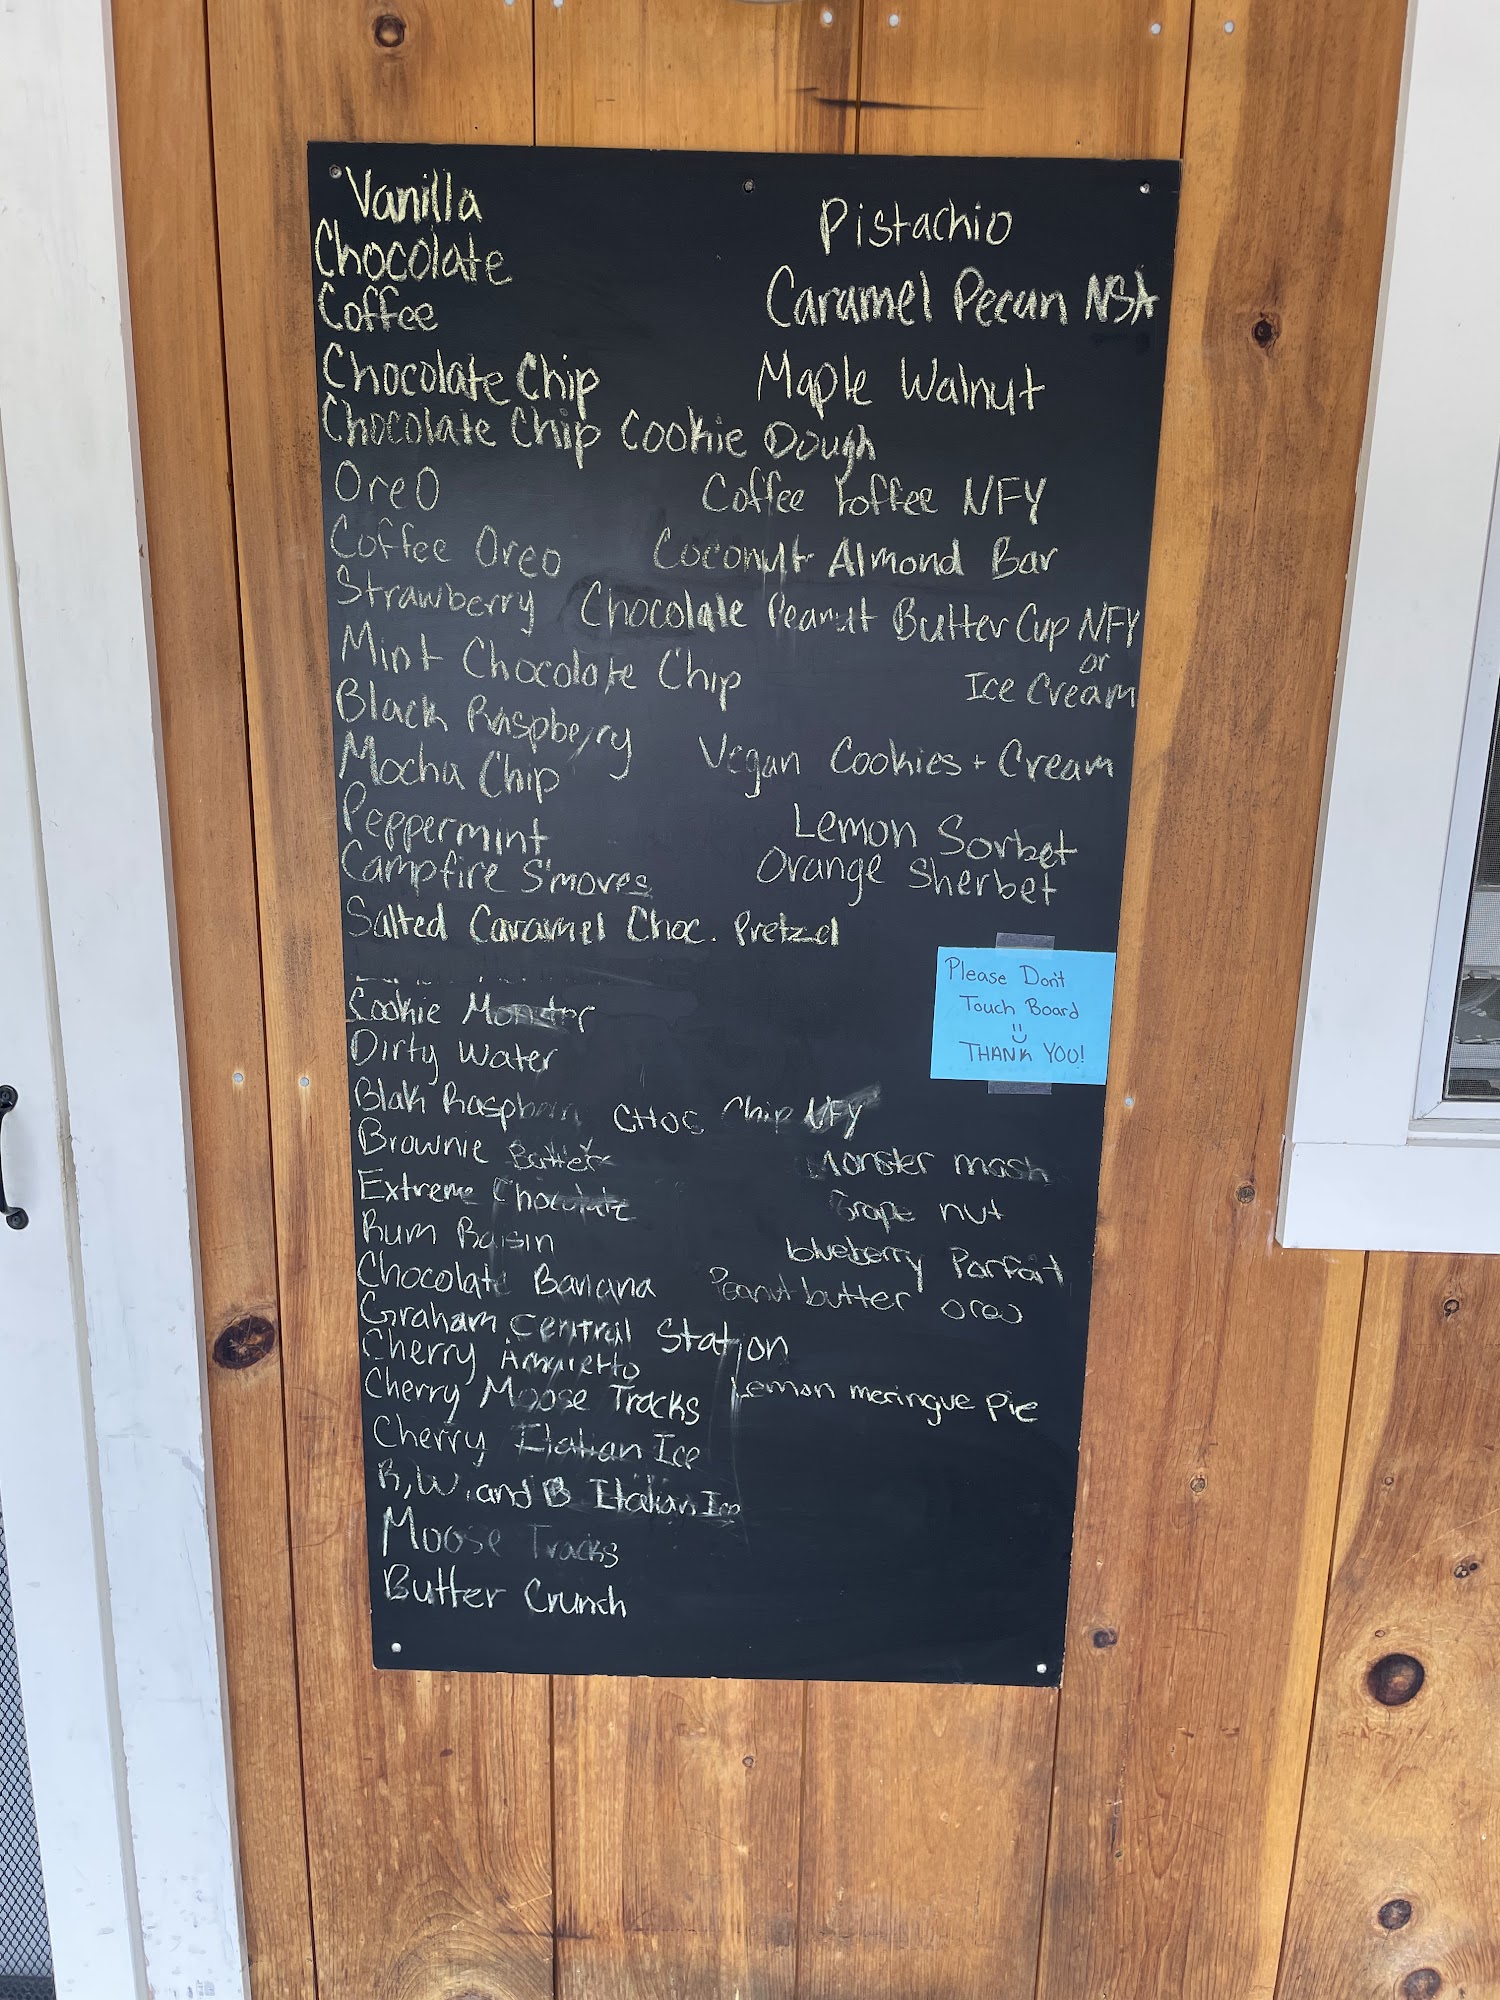 Vanilla
Chocolate
Coffee
Chocolate Chip
Chocolate Chip Cookie Dough
Oreo
Coffee Oreo
Strawberry
Mint Chocolate Chip
Black Raspberry
Mocha Chip
Peppermint
Campfire S'mores
Salted Caramel Choc. Pretzel
Cookie Monster
Dirty Water
Blak Raspberry CHOC Chip NFY
Brownie Batter
Extreme Chocolate
Rum Raisin
Chocolate Banana
Graham Central Station
Cherry Amaretto
Cherry Moose Tracks
Cherry Italian Ice
R, W, and B Italian Ice
Moose Tracks
Butter Crunch
Pistachio
Caramel Pecan NSA
Maple Walnut
Coffee Toffee NFY
Coconut Almond Bar
Chocolate Peanut Butter Cup NFY
or
Ice Cream
Vegan Cookies + Cream
Lemon Sorbet
Orange Sherbet
Please Don't
Touch Board
THANK YOU!
Monster mash
Grape nut
blueberry Parfait
Peanut butter oreo
Lemon meringue Pie